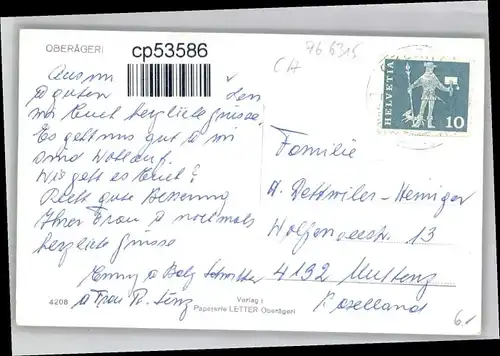 OBERÄGERI
cp53586
766315
CH
HELVETIA
10
Aus
guten
Euch herzliche Grüsse.
Es geht uns gut & wir
sind wohlauf.
Wie geht es Euch?
Recht gute Besserung
Ihrer Frau & nochmals
herzliche Grüsse
Emmy & Balz
& Frau R. Senz
Familie
A. Dettwiler-Heiniger
13
4132 Muttenz
Baselland
4208
Verlag:
Papeterie LETTER Oberägeri
6.-